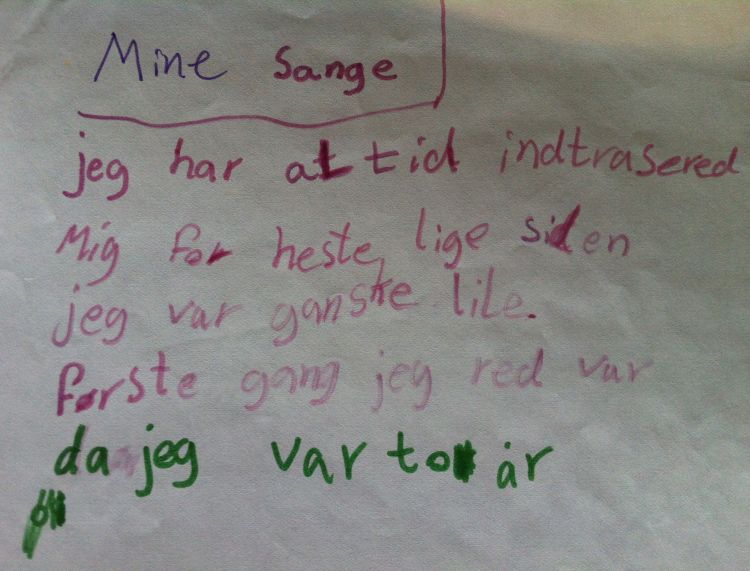 Mine Sange
jeg har altid indtrasered
Mig for heste, lige siden
jeg var ganske lile.
første gang jeg red var
da jeg var to år